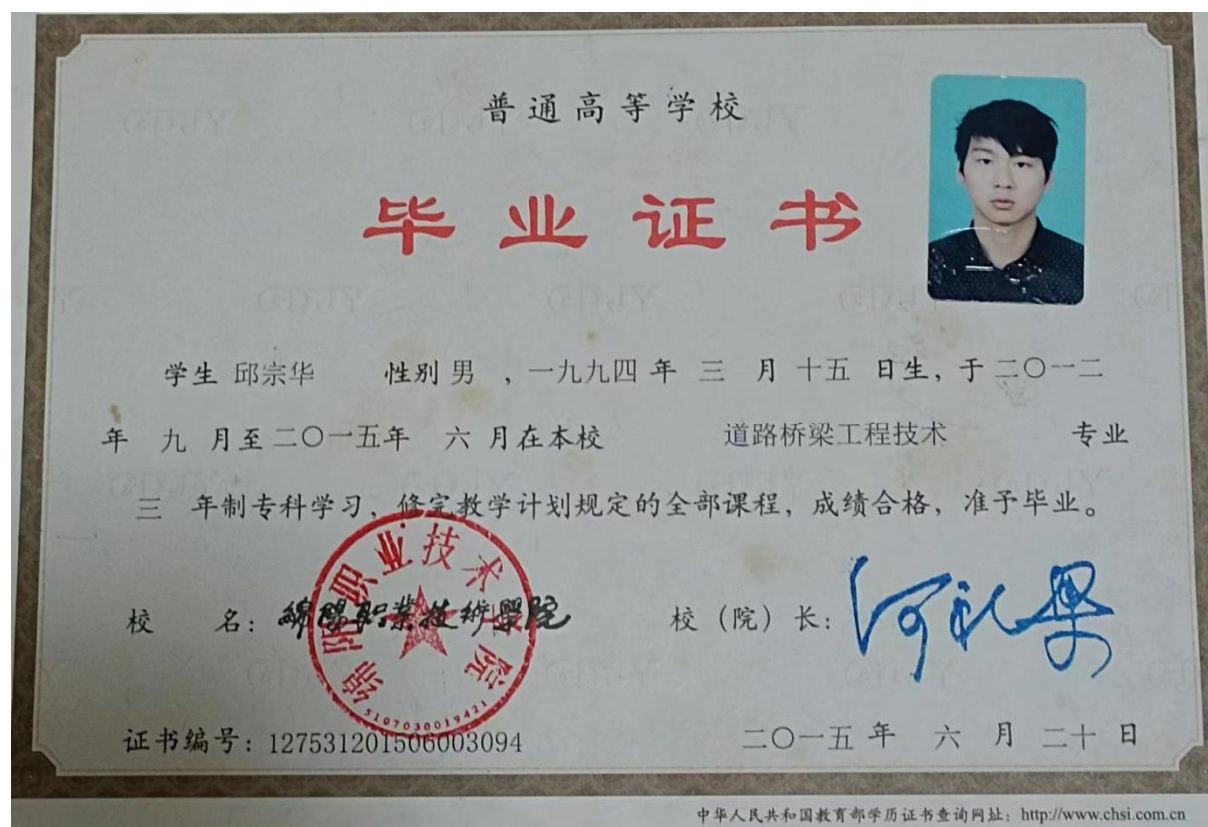 普通高等学校
毕业证书
学生 邱宗华 性别 男 ，一九九四 年 三 月 十五 日生，于二〇一二
年 九 月至二〇一五年 六 月在本校 道路桥梁工程技术 专业
三 年制专科学习，修完教学计划规定的全部课程，成绩合格，准予毕业。
校 名：綿陽职業技術學院 校（院）长：何礼果
绵阳职业技术学院
5107030019421
证书编号：127531201506003094 二〇一五 年 六 月 二十 日
中华人民共和国教育部学历证书查询网址：http://www.chsi.com.cn